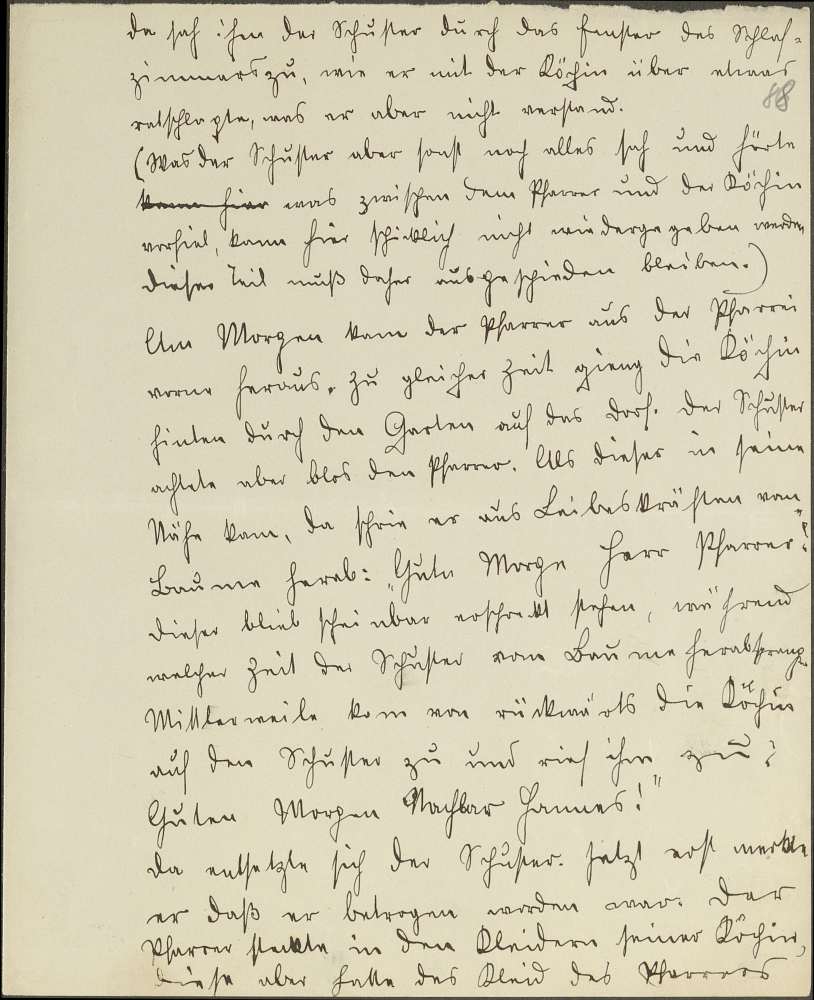 da sah ihm der Schuster durch das Fenster des Schlaf-
zimmers zu, wie er mit der Köchin über etwas
88
ratschlagte, was er aber nicht verstand.
(Was der Schuster aber sonst noch alles sah und hörte
kann hier was zwischen dem Pfarrer und der Köchin
vorfiel, kann hier schicklich nicht wiedergegeben werden
dieser Teil muß daher ausgeschieden bleiben.)
Am Morgen kam der Pfarrer aus der Pfarrei
vorne heraus. Zu gleicher Zeit gieng die Köchin
hinten durch den Garten auf das Dorf. Der Schuster
achtete aber blos den Pfarrer. Als dieser in seine
Nähe kam, da schrie er aus Leibeskräften vom
Baume herab: „Gute Morge Herr Pfarrer!"
Dieser blieb scheinbar erschreckt stehen, während
welcher Zeit der Schuster vom Baume herabsprang.
Mittlerweile kam von rückwärts die Köchin
auf den Schuster zu und rief ihm zu:
Guten Morgen Nachbar Hannes!"
Da entsetzte sich der Schuster. Jetzt erst merkte
er daß er betrogen worden war. Der
Pfarrer steckte in den Kleidern seiner Köchin,
diese aber hatte des Kleid des Pfarrers